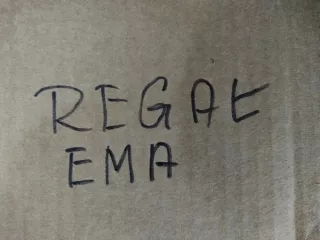 REGAE
EMA